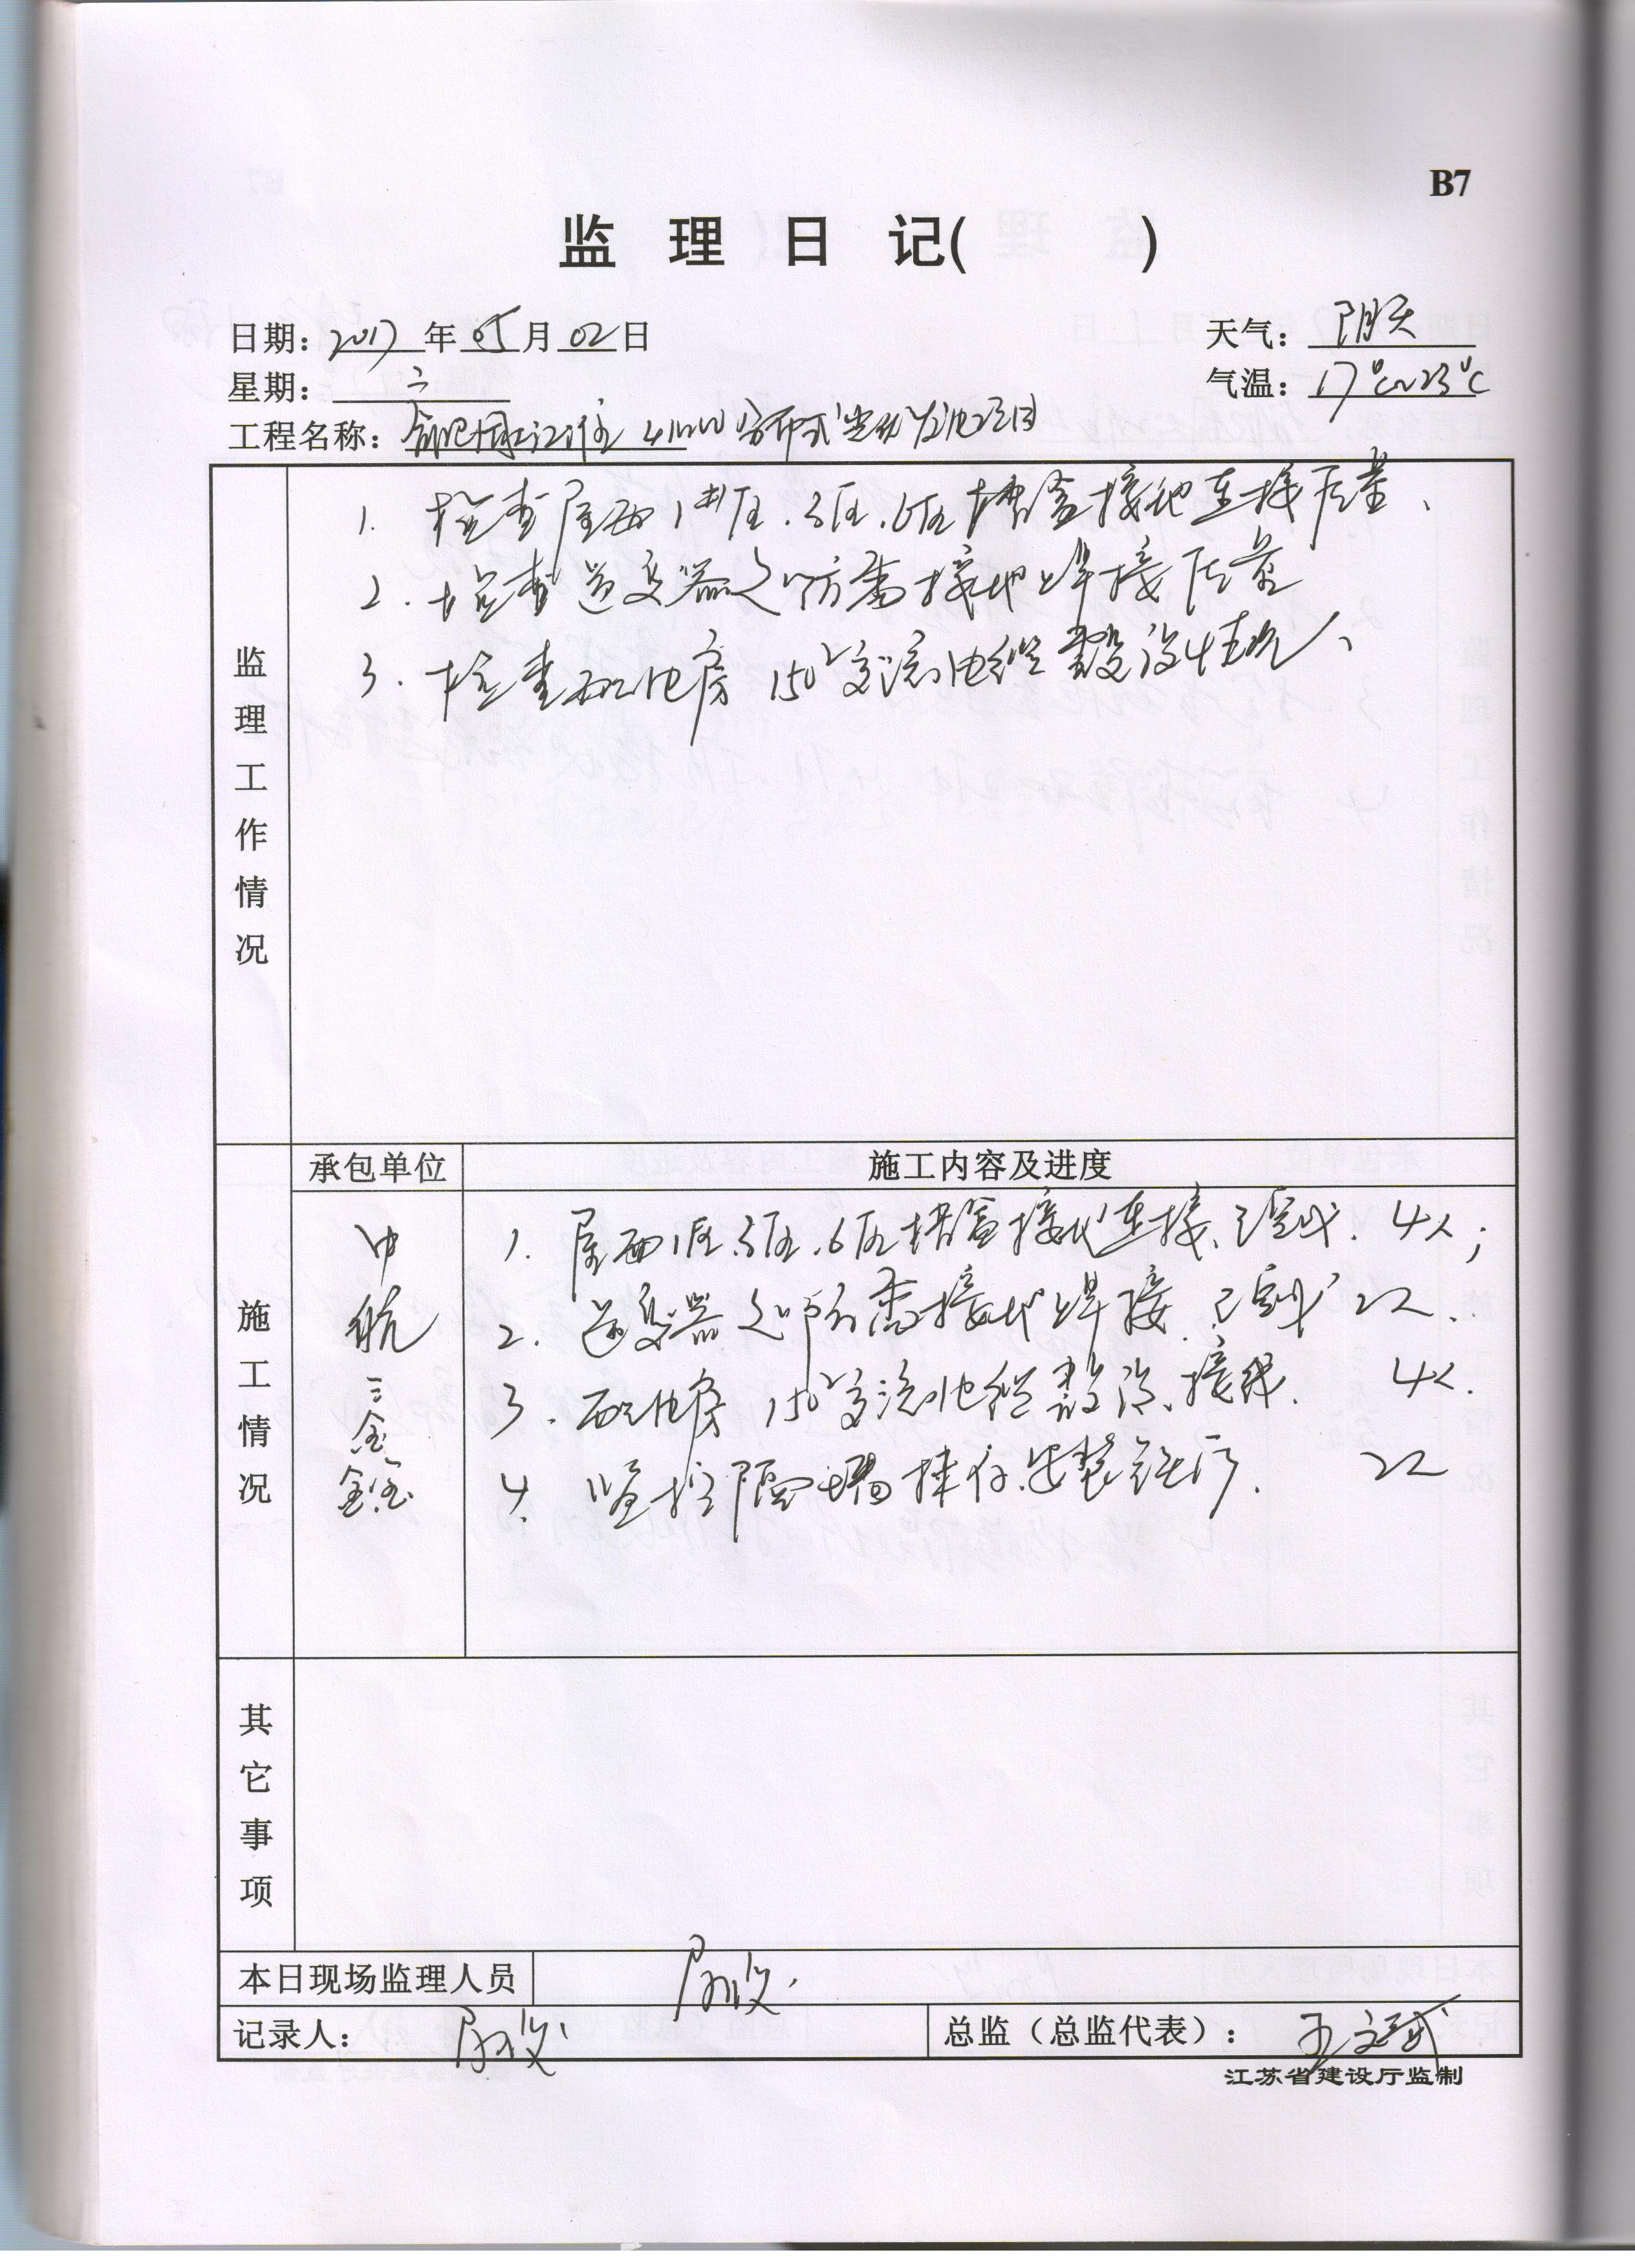 B7
监 理 日 记( )
日期: 2017 年 05 月 02 日
天气: 阴天
星期: 二
气温: 17℃~23℃
工程名称: 分布式光伏发电项目
监理工作情况
1. 检查屋面1#区.3区.6区桥架接地连接质量、
2. 检查逆变器之防雷接地焊接质量
3. 检查配电房150²交流电缆敷设情况、
承包单位
施工内容及进度
施工情况
中航三鑫
1. 屋面1区.3区.6区桥架接地连接、已完成. 4人;
2. 逆变器之防雷接地焊接. 已完成 2人.
3. 配电房150²交流电缆敷设、接线. 4人.
4. 监控 安装进行. 2人
其它事项
本日现场监理人员
记录人:
总监（总监代表）: 王
江苏省建设厅监制